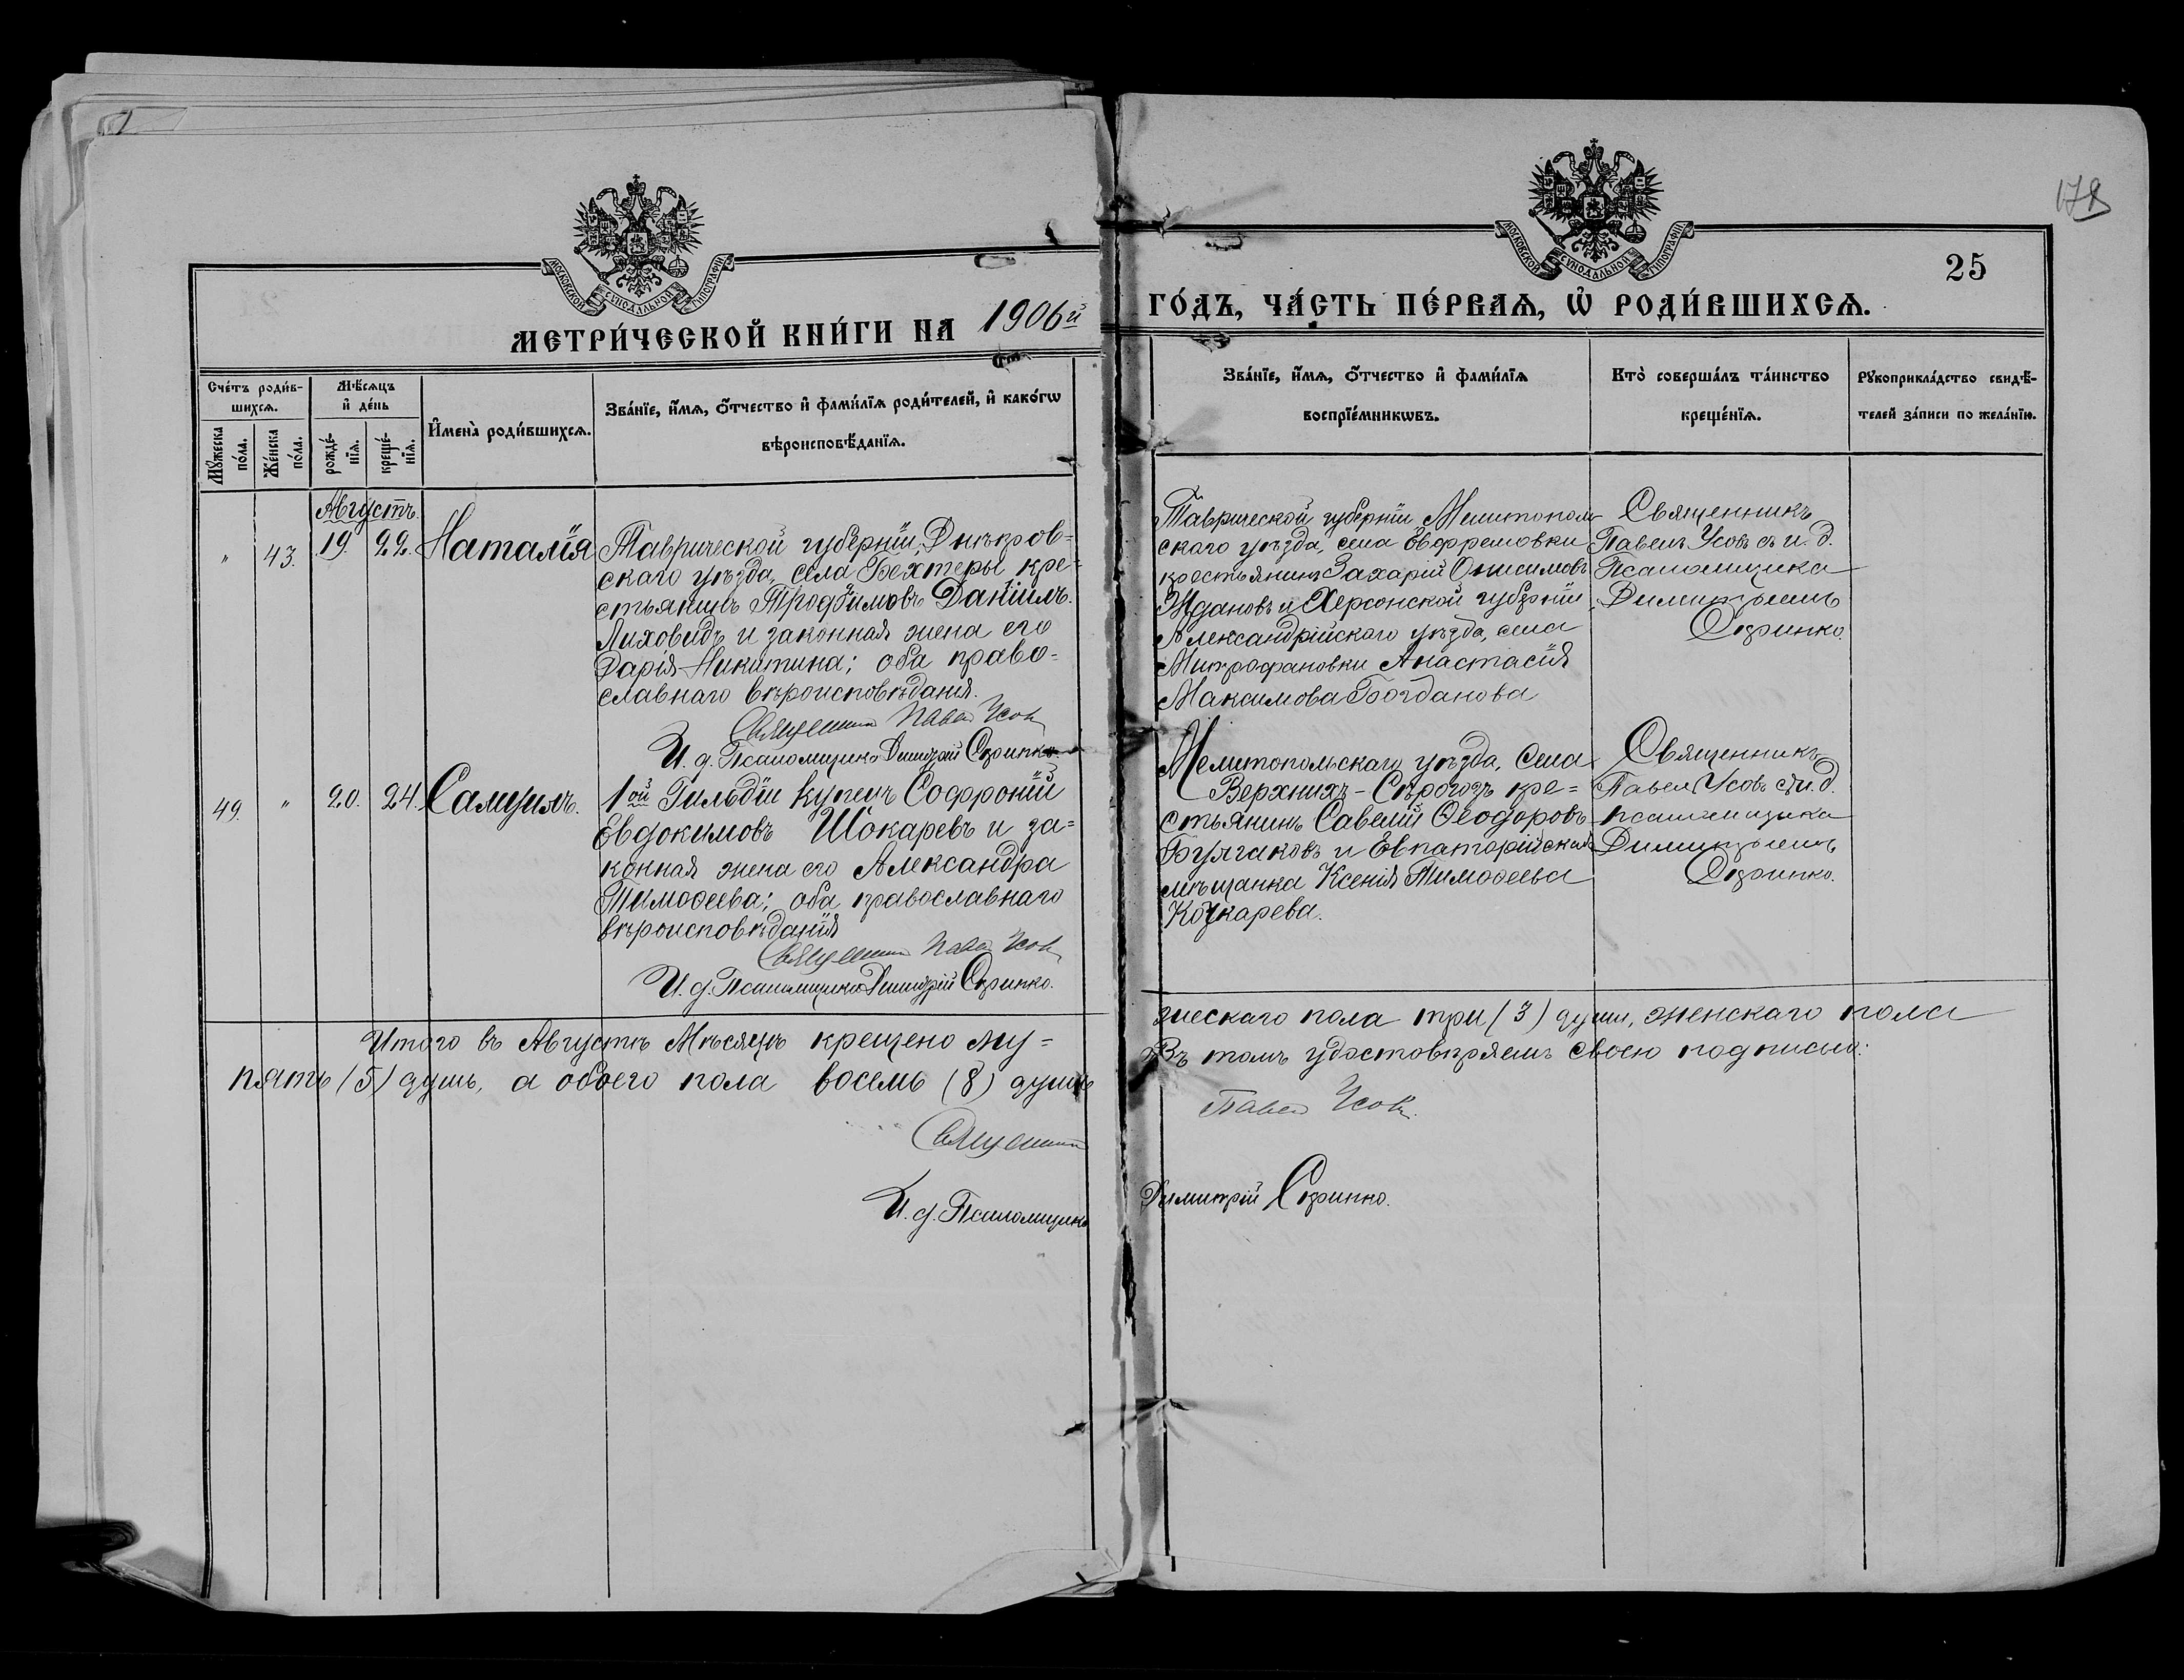 178
25
МОСКОВСКОЙ СѴНОДАЛЬНОЙ ТИПОГРАФІИ
МОСКОВСКОЙ СѴНОДАЛЬНОЙ ТИПОГРАФІИ
МЕТРИ́ЧЕСКОЙ КНИ́ГИ НА 1906й ГО́ДЪ, ЧА́СТЬ ПЕ́РВАѦ, Ѡ҆ РОДИ́ВШИХСѦ.
Сче́тъ роди́в-
шихсѧ.
Мꙋ́жеска по́ла.
Же́нска по́ла.
Мѣ́сѧцъ
и҆ де́нь
рожде́-
нїѧ.
креще́-
нїѧ.
И҆мена̀ роди́вшихсѧ.
Зва́нїе, и҆́мѧ, ѻ҆́тчество и҆ фами́лїѧ роди́телей, и҆ како́гѡ
вѣроисповѣ́данїѧ.
Зва́нїе, и҆́мѧ, ѻ҆́тчество и҆ фами́лїѧ
воспрїе́мникѡвъ.
Кто̀ соверша́лъ та́инство
креще́нїѧ.
Рꙋкоприкла́дство свидѣ́-
телей за́писи по жела́нїю.
Августъ.
" 43. 19. 22. Наталія
Таврической губерніи, Днѣпров=
скаго уѣзда, села Бехтеры кре=
стьянинъ Трофимовъ Даніилъ
Лиховидъ и законная жена его
Дарія Никитина; оба право=
славнаго вѣроисповѣданія.
Священникъ Павелъ Усовъ
И. д. Псаломщика Димитрій Скрипко.
Таврической губерніи Мелитополь-
скаго уѣзда, села Ефремовки
крестьянинъ Захарій Онисимовъ
Ждановъ и Херсонской губерніи
Александрійскаго уѣзда, села
Митрофановки Анастасія
Максимова Богданова
Священникъ
Павелъ Усовъ съ и. д.
Псаломщика
Димитріемъ
Скрипко.
49. " 20. 24. Самуилъ.
1ой Гильдіи купецъ Софроній
Евдокимовъ Шокаревъ и за=
конная жена его Александра
Тимоѳеева; оба православнаго
вѣроисповѣданія
Священникъ Павелъ Усовъ
И. д. Псаломщика Димитрій Скрипко.
Мелитопольскаго уѣзда, села
Верхнихъ-Сѣрогозъ кре=
стьянинъ Савелій Ѳеодоровъ
Булгаковъ и Евпаторійская
мѣщанка Ксенія Тимоѳеева
Кочкарева.
Священникъ
Павелъ Усовъ съ и. д.
псаломщика
Димитріемъ
Скрипко.
Итого въ Августѣ Мѣсяцѣ крещено му=
жескаго пола три (3) души, женскаго пола
пять (5) душъ, а обоего пола восемь (8) душъ
Въ томъ удостовѣряемъ своею подписью:
Священникъ Павелъ Усовъ.
И. д. Псаломщика Димитрій Скрипко.